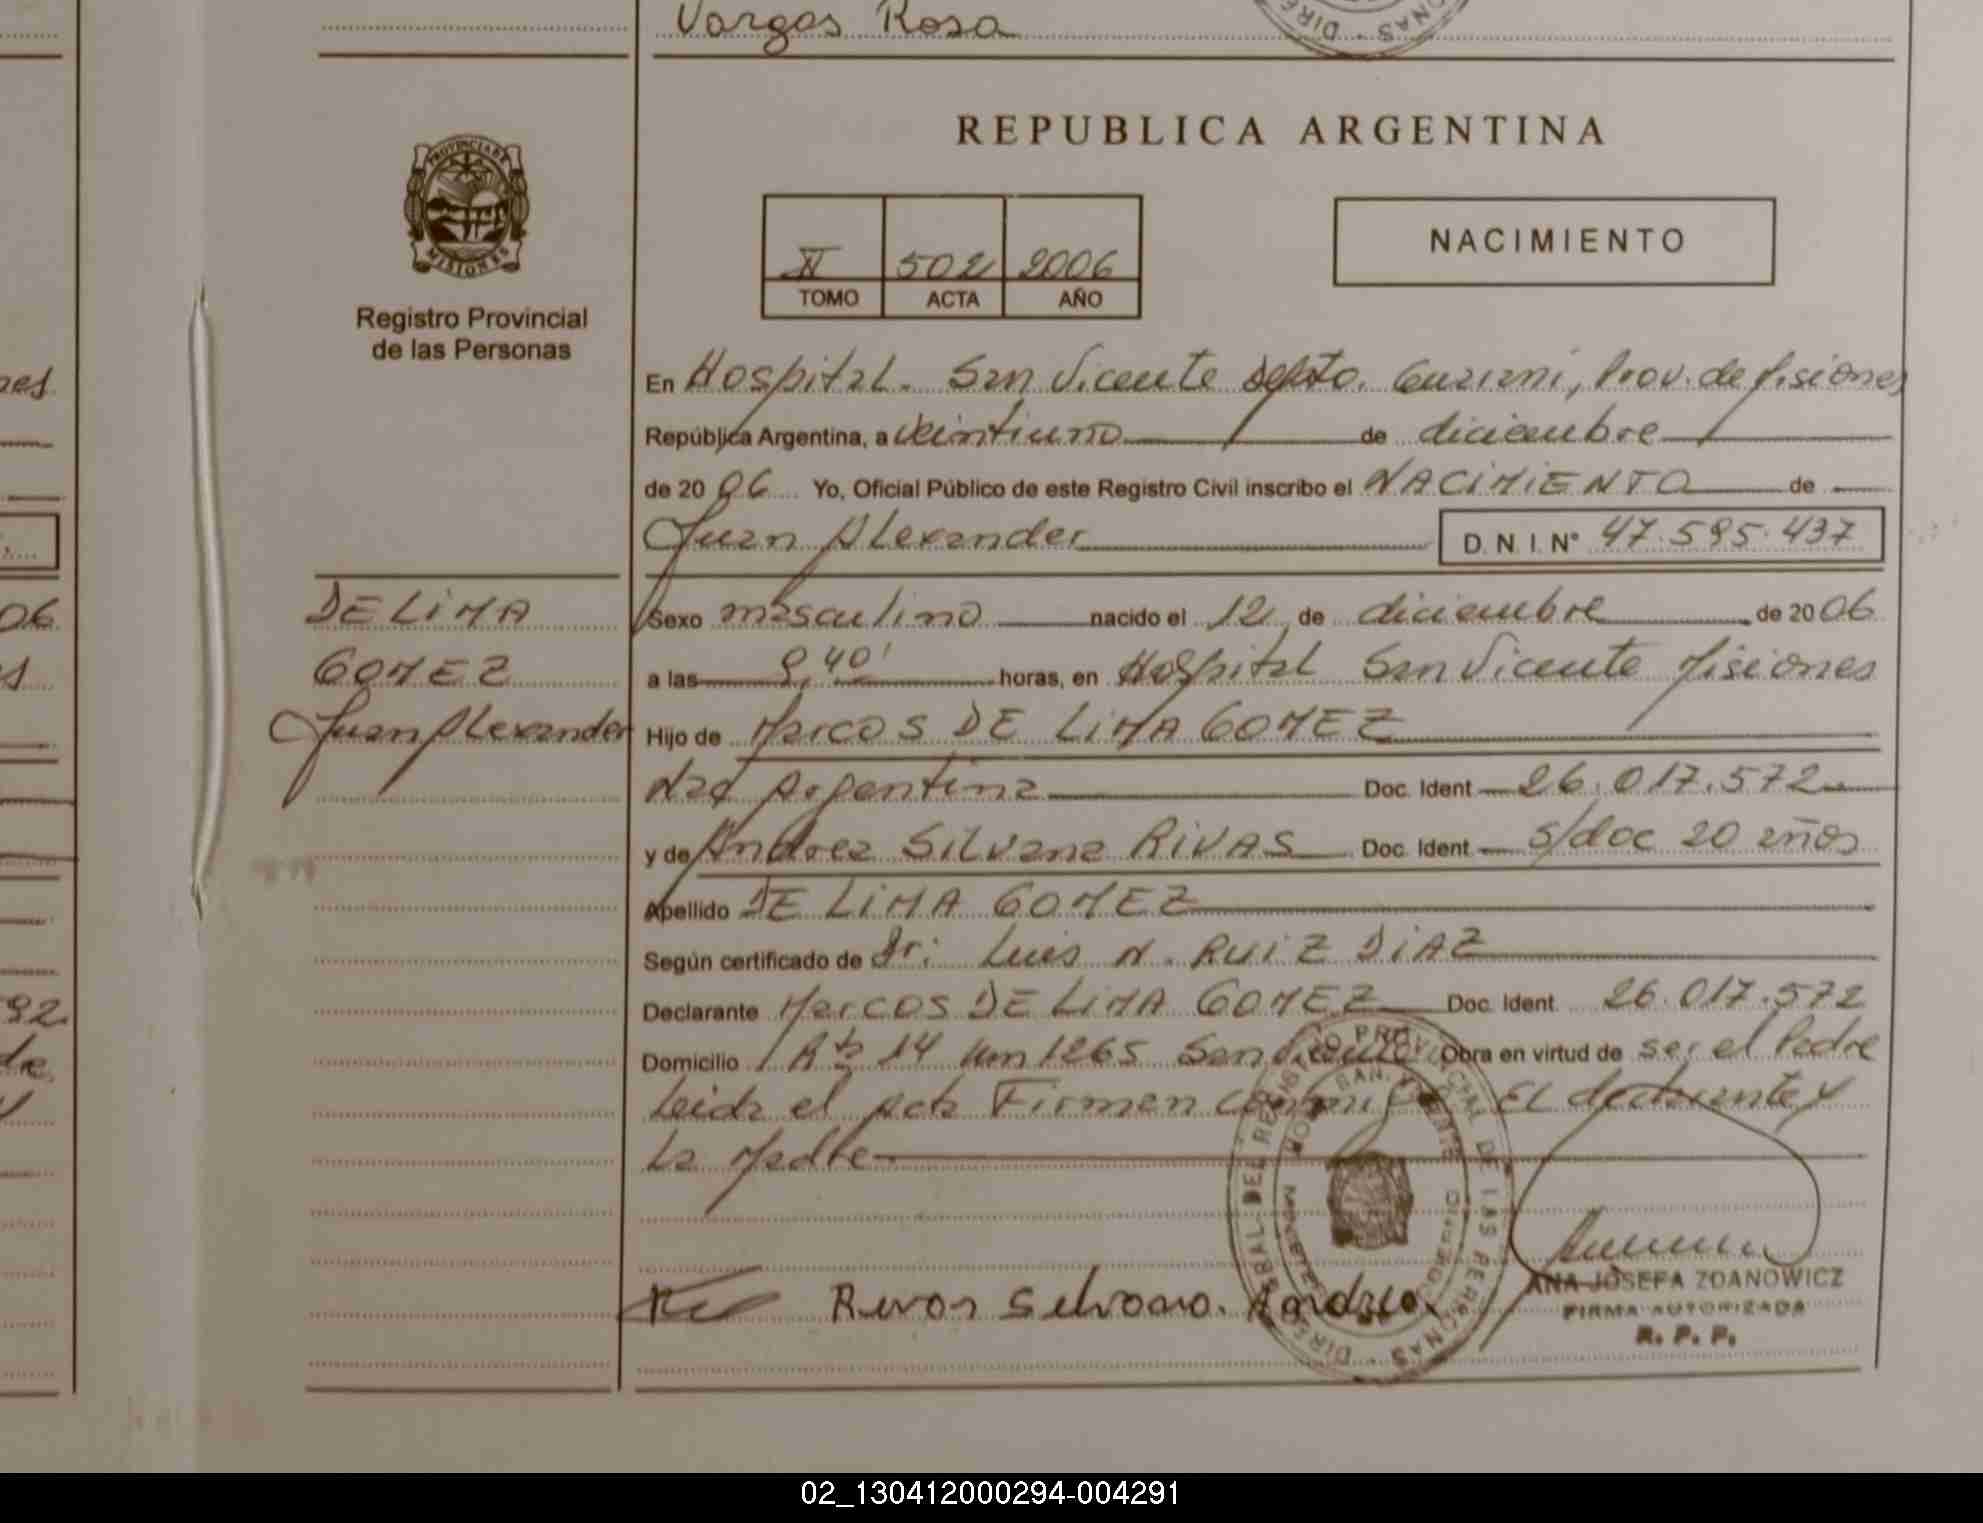 Vargas Rosa
REPUBLICA ARGENTINA
PROVINCIA DE
MISIONES
Registro Provincial
de las Personas
II 502 2006
TOMO ACTA AÑO
NACIMIENTO
En Hospital. San Vicente Depto. Guarani, Prov. de Misiones
República Argentina, a veintiuno de diciembre
de 20 06 Yo, Oficial Público de este Registro Civil inscribo el NACIMIENTO de
Juan Alexander D. N. I. N° 47.595.437
DE LIMA
GOMEZ
Juan Alexander
Sexo masculino nacido el 12 de diciembre de 20 06
a las 9,40' horas, en Hospital San Vicente Misiones
Hijo de Marcos DE LIMA GOMEZ
Nac Argentina Doc. Ident 26.017.572
y de Andrea Silvana RIVAS Doc. Ident s/doc 20 años
Apellido DE LIMA GOMEZ
Según certificado de Dr: Luis N. RUIZ DIAZ
Declarante Marcos DE LIMA GOMEZ Doc. Ident. 26.017.572
Domicilio Rta 14 Km 1265 San Vicente Obra en virtud de ser el Padre
Leida el acta Firman conmigo El declarante y
La Madre
Rivas Silvana Andrea
ANA JOSEFA ZDANOWICZ
FIRMA AUTORIZADA
R. P. P.
02_130412000294-004291